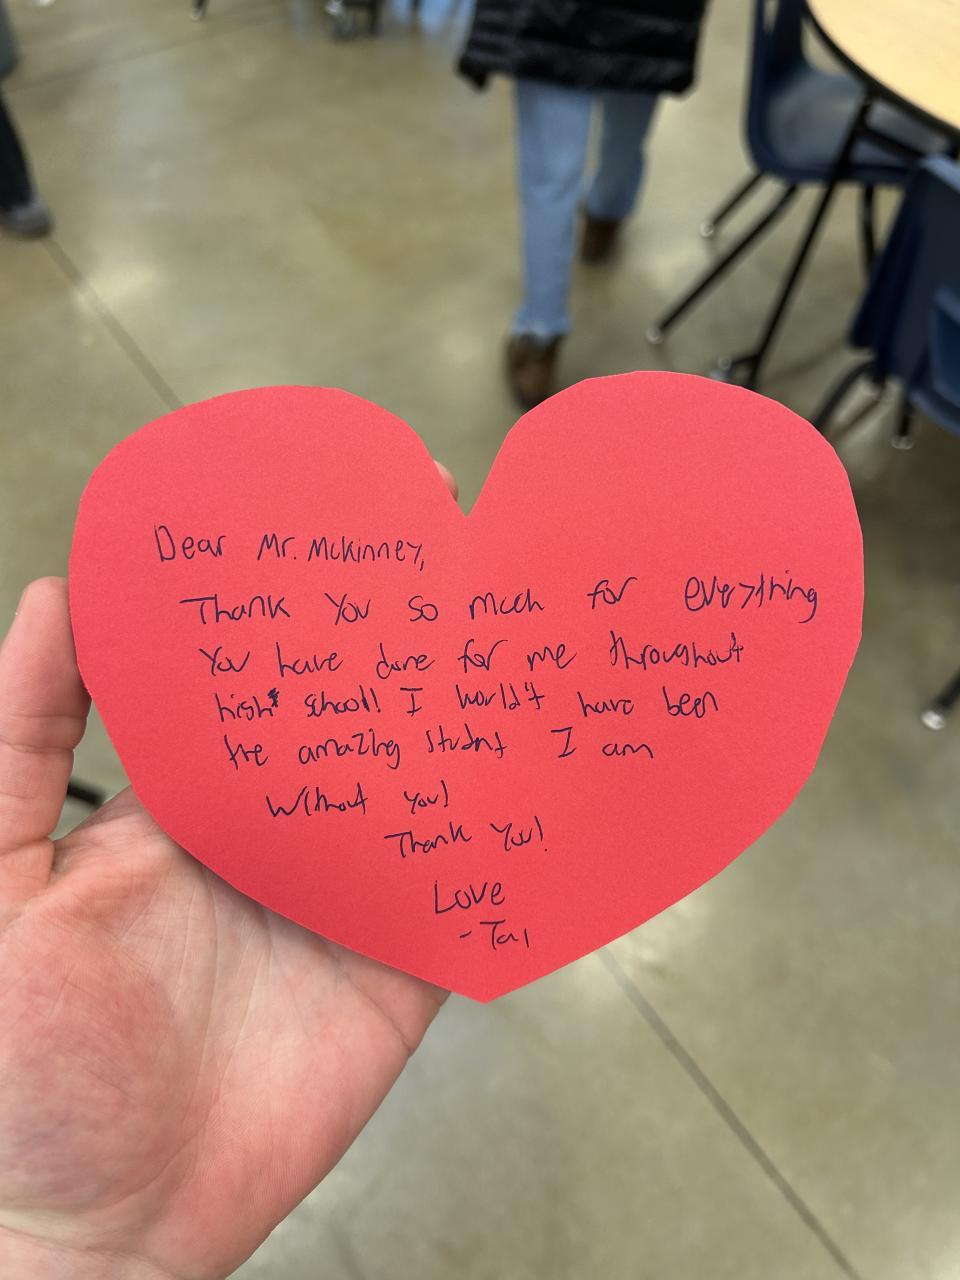 Dear Mr. McKinney,
Thank You so much for everything
You have done for me throughout
high school! I wouldn't have been
the amazing student I am
without you!
Thank You!
Love
- Tai